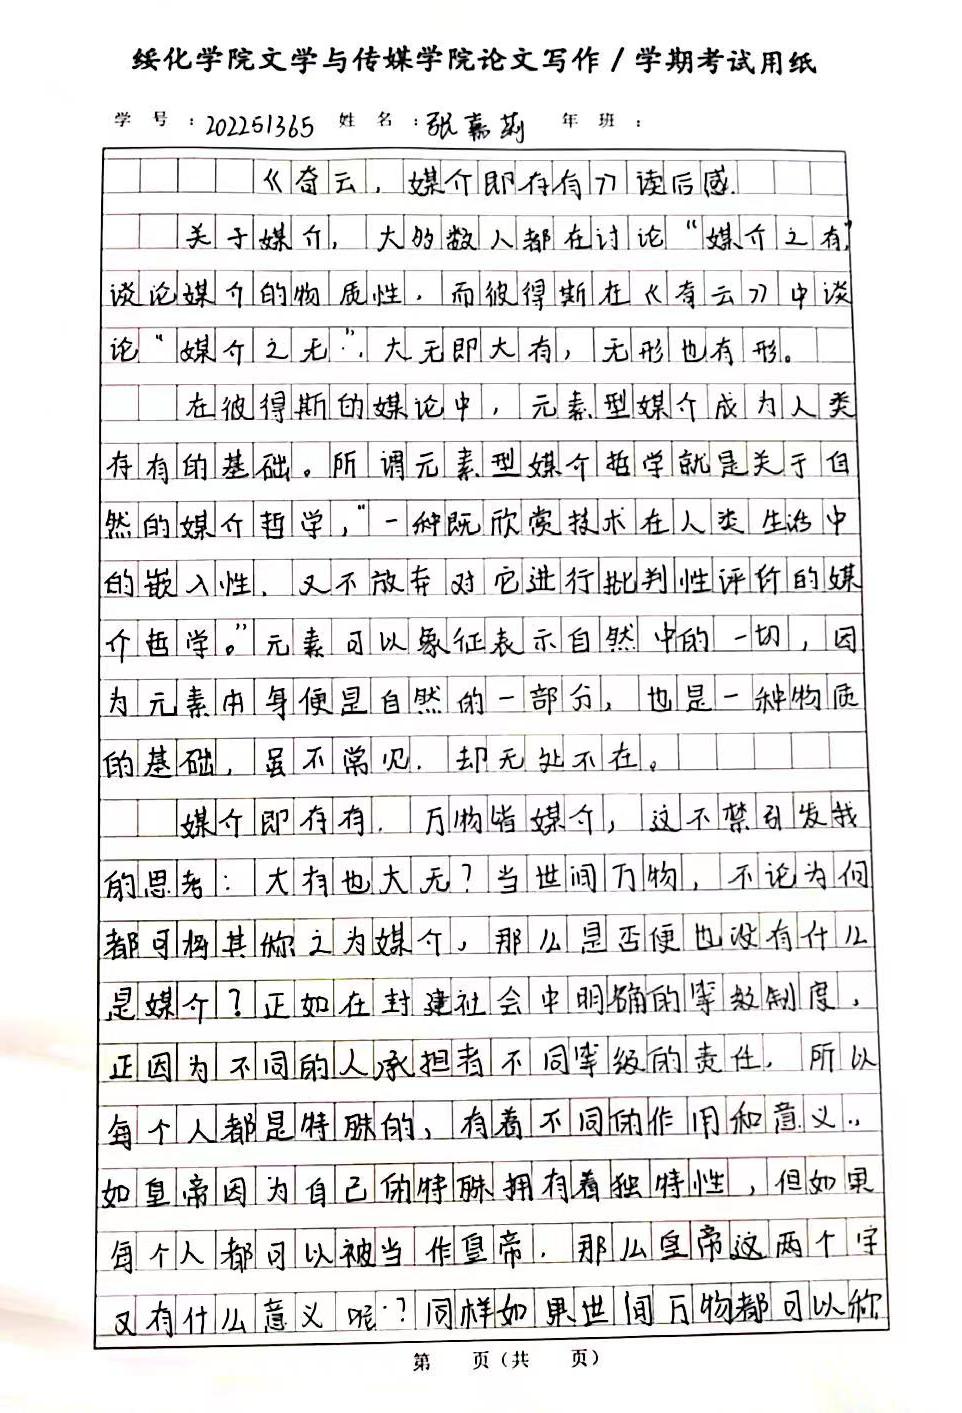 绥化学院文学与传媒学院论文写作/学期考试用纸
学 号 :202251365 姓 名 :张嘉莉 年 班 :
《奇云,媒介即存有》读后感.
关于媒介,大多数人都在讨论“媒介之有”,
谈论媒介的物质性.而彼得斯在《奇云》中谈
论“媒介之无”.大无即大有,无形也有形。
在彼得斯的媒论中,元素型媒介成为人类
存有的基础。所谓元素型媒介哲学就是关于自
然的媒介哲学,“一种既欣赏技术在人类生活中
的嵌入性.又不放弃对它进行批判性评价的媒
介哲学。”元素可以象征表示自然中的一切,因
为元素本身便是自然的一部分,也是一种物质
的基础,虽不常见.却无处不在。
媒介即存有.万物皆媒介,这不禁引发我
的思考:大有也大无?当世间万物,不论为何
都可将其称之为媒介,那么是否便也没有什么
是媒介?正如在封建社会中明确的等级制度,
正因为不同的人承担着不同等级的责任.所以
每个人都是特殊的,有着不同的作用和意义.,
如皇帝因为自己的特殊拥有着独特性,但如果
每个人都可以被当作皇帝.那么皇帝这两个字
又有什么意义呢?同样如果世间万物都可以称
第 页(共 页)